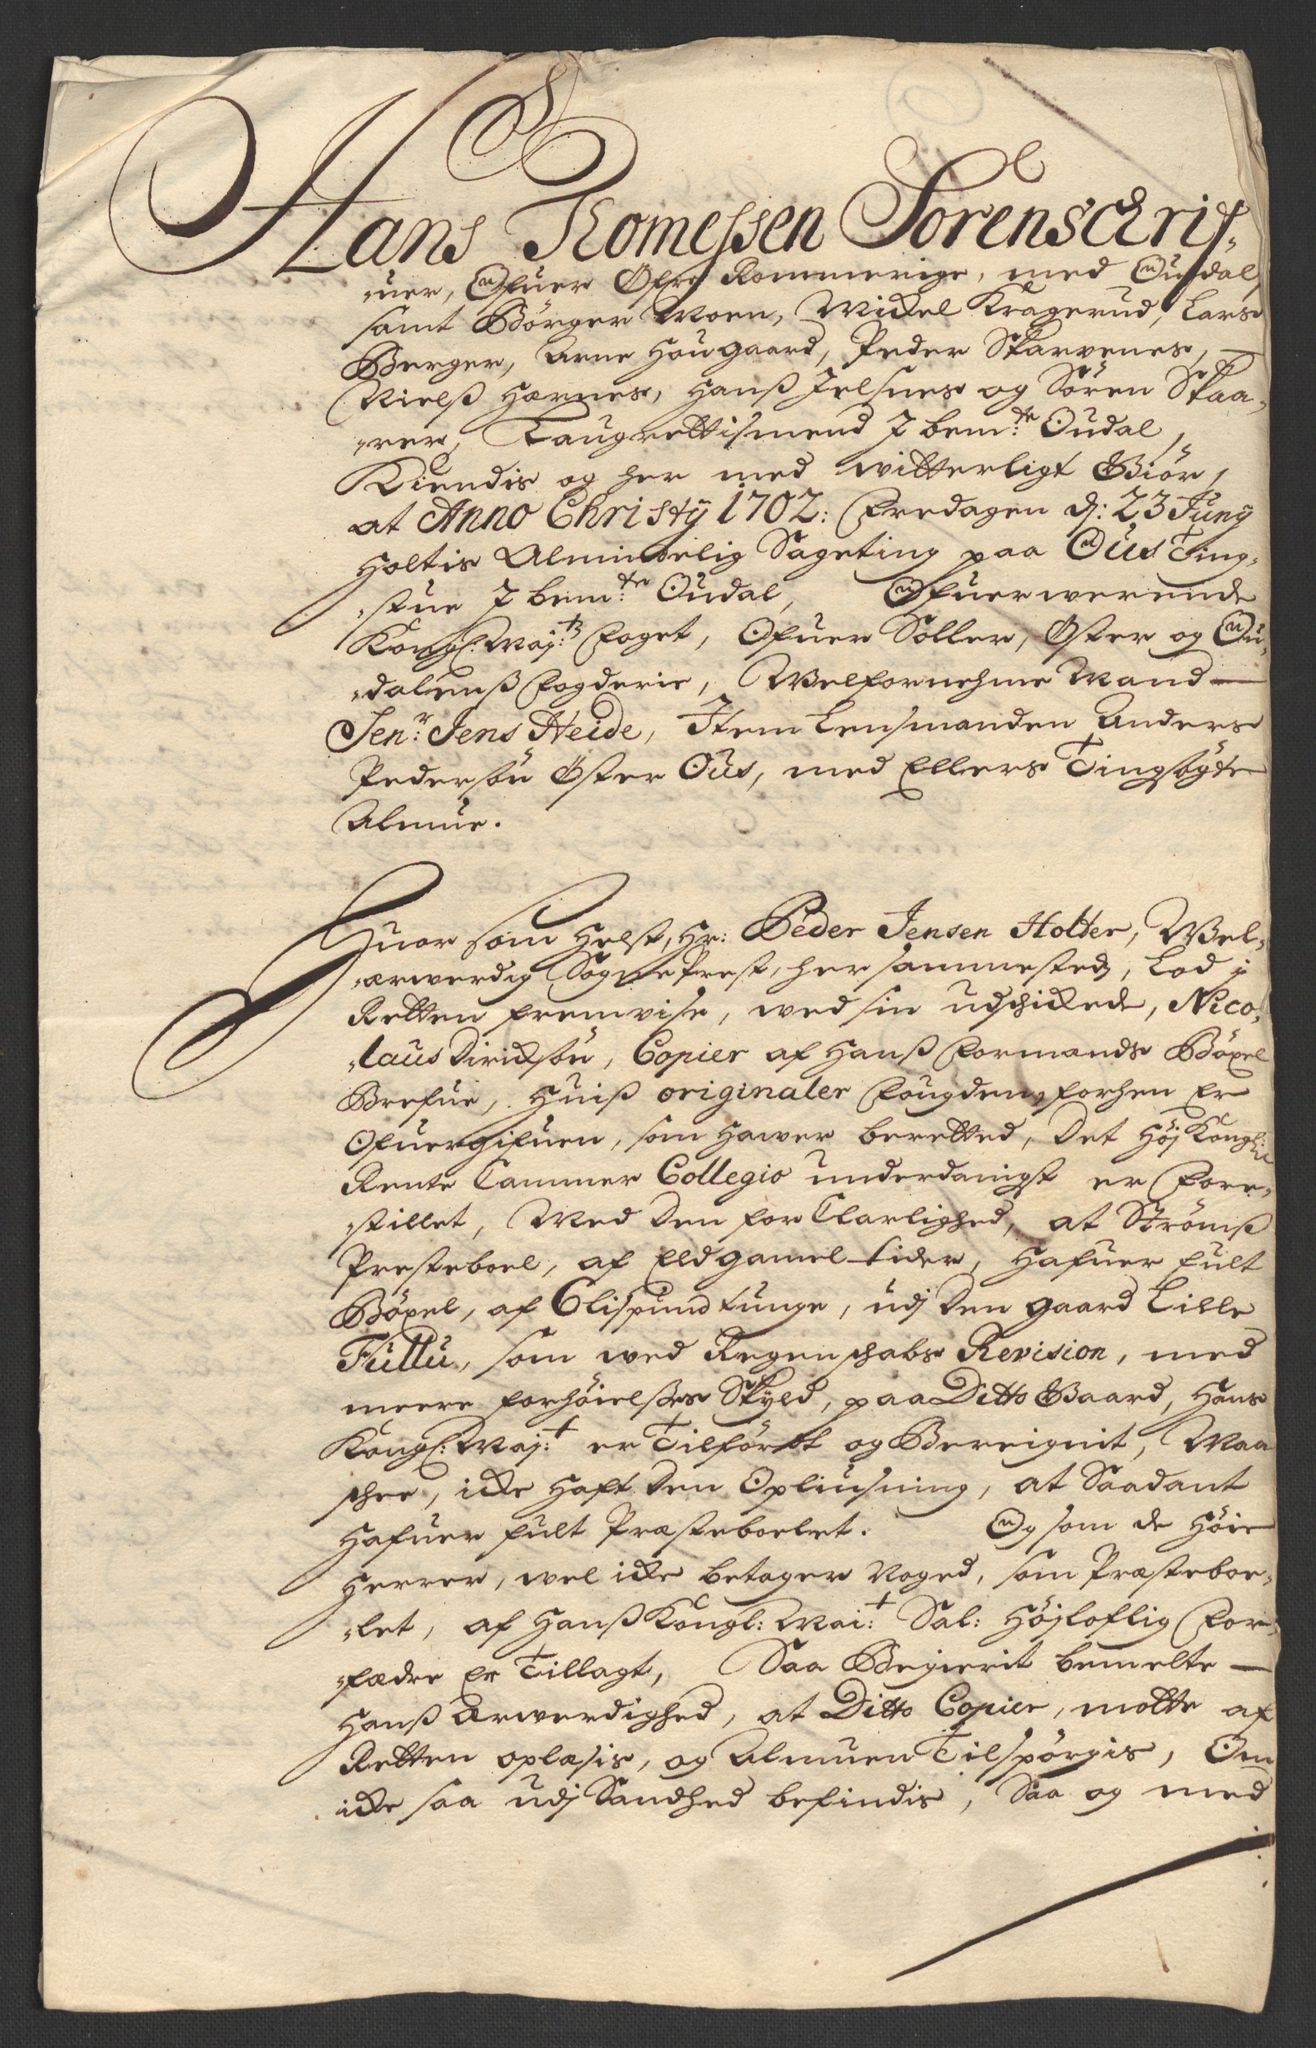 Hans Thomessen Sorenschrif-
-uer, Ofuer Øfre Rommerige, med Oudal,
samt Börger Moen, Mickel Kragerud, Lars
Berger, Arne Hougaard, Peder Skarvenes,
Nielß Hernes, Hanß Jelsnes og Sören Skaa-
-rer, Laugrettismend J bem:te Oudal,
Kiendis og her med witterligt Giör,
at Anno Christÿ 1702: Fredagen d: 23 Junÿ
Holtis Almindelig Sageting paa Ous Ting-
-stue J bem:te Oudal, Ofuerwerende
Kongl: Maj:ts Foget, Ofuer Soller, Øster og Ou-
-dalenß Fogderie, Welfornehme Mand
Sen:r Jens Heide, Item Lensmanden Anders
Pedersøn Øster Ous, med Ellers Tingsögte
Almue.
Huor som Helst, Hr: Peder Jensen Holter, Wel-
-arwerdig SognePrest, her sammesteds, Lod j
Retten fremvise, wed sin udschickede, Nico-
-laus Dirichsøn, Copier af Hanß Formands Böxel
Brefue, Huiß originaler Fougden forhen Er
Ofuergifuen, som Hawer beretted, Det Höj Kongli:
Rente Cammer Collegio underdanigst er Fore-
-stillet, Med Den for Clarlighed, at Strömß
Presteboel, af Eldgamel tider, Hafuer fult
Böxel, af 6 Lispund tunge, udj Den gaard Lille
Fullu, som wed Regenschabs Revision, med
meere forhöielses Skyld, paa Ditto Gaard, Hans
Kongl: Maj:t er Tilfört og Bereignit, Maa
schee, icke Haft Den Opliusning, at Saadant
Hafuer fult Præsteboelet. Og som de Höie
Herrer, wel icke betager Noged, som Præsteboe-
-let, af Hanß Kongl: Mai:t Sal: Höjloflig For-
-fædre Er Tillagt, Saa Begierit bemelte
Hanß Ærwerdighed, at Ditto Copier, motte af
Retten oplæsis, og Almuen Tilspörgis, Om
icke saa udj Sandhed befindis, Saa og med